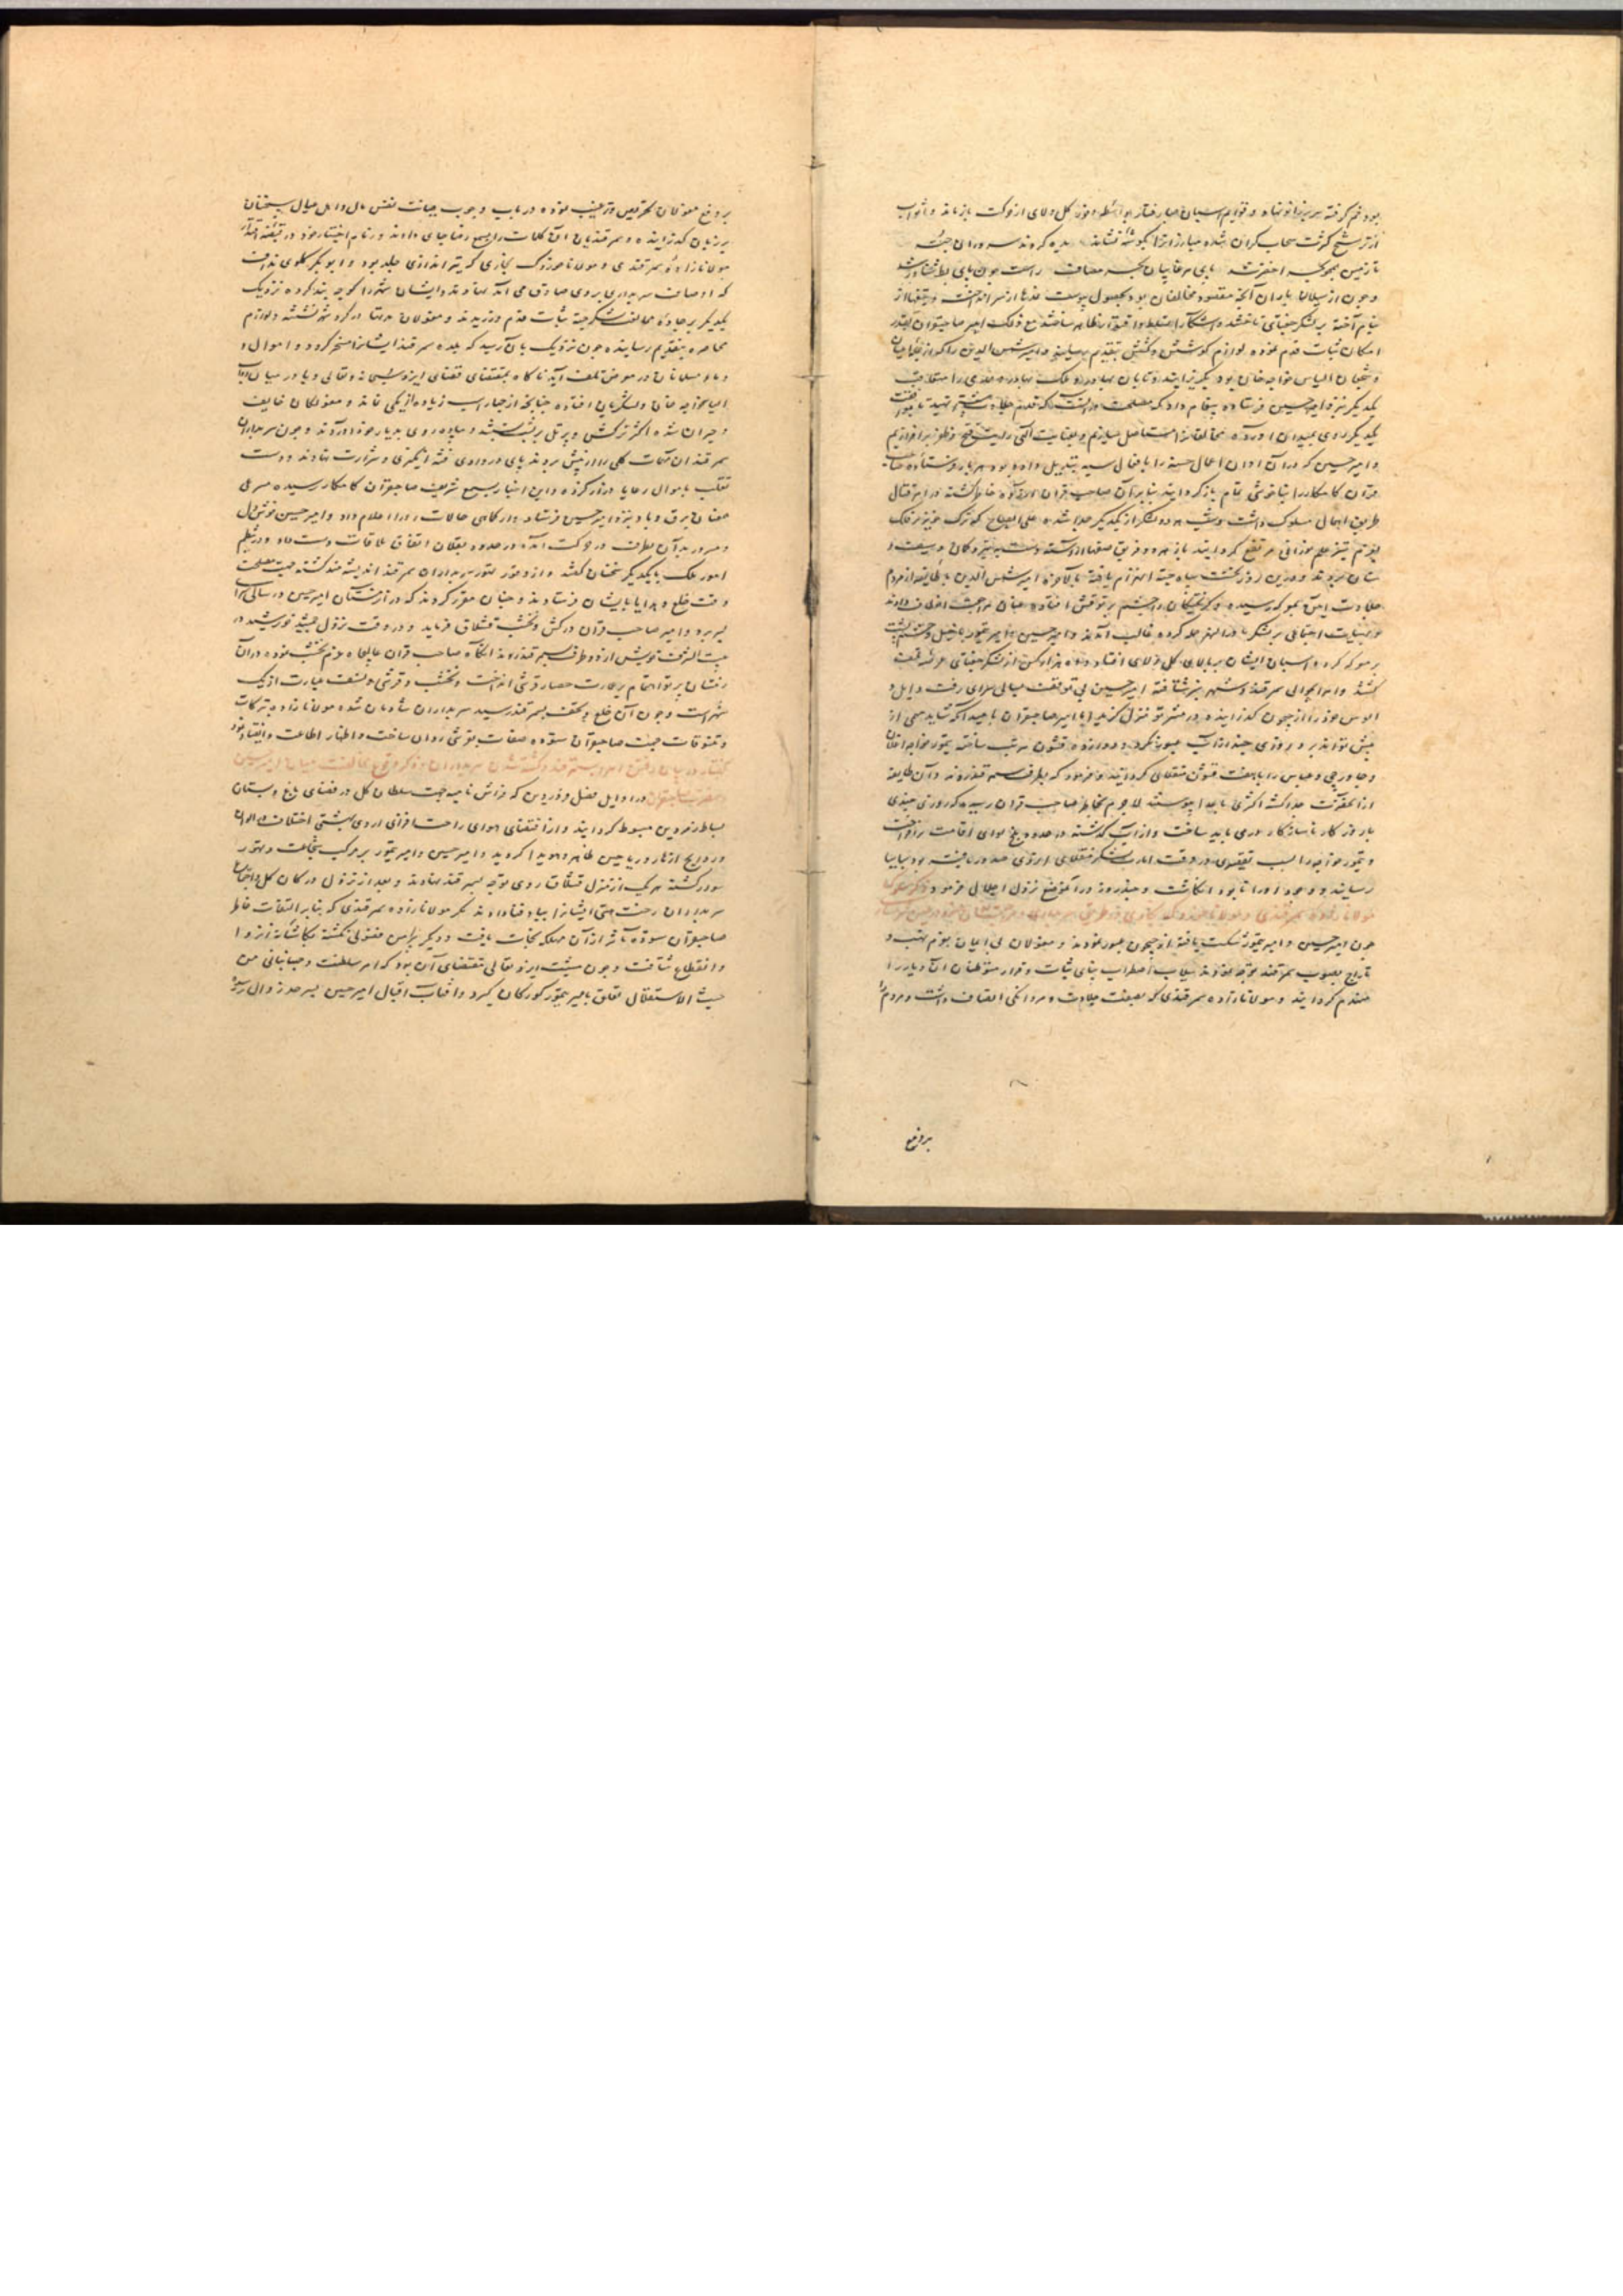 بود خم گرفته سر بزانو نهاد و قوایم اسبان صبا رفتار بواسطه وفور کل ولای از حرکت باز ماند و اثواب
از ترشح کثرت سحاب گران شده مبارزانرا بگوشه نشاند
و چون از سیلان باران آنچه مقصود مخالفان بود بحصول پیوست
نیام آخته بر لشکر جغتای تاختند امیر صاحبقران
امکان ثبات قدم نموده لوازم کوشش و کشش بتقدیم رسانید و امیر شمس الدین را که از
و شجعان الیاس خواجه خان بود بهادر و ملک بهادر
یکدیگر نزد امیر حسین فرستاده پیغام داد که مصلحت در آنست که قدم جلادت
یکدیگر روی بمیدان آورده مخالفانرا مستاصل سازیم و بعنایت الهی رایت فتح و ظفر بر افرازیم
و امیر حسین که در آن اوان اعمال حسنه را بافعال سیئه تبدیل داده بود هر بار فرستاده صاحب
قران کامکار را بناخوشی تمام باز گردانید بنابر آن صاحب قران آزرده خاطر گشته در امر قتال
طریق اهمال مسلوک داشت و شب هر دو لشکر از یکدیگر جدا شده علی الصباح که ترک خنجر گذار فلک
علم نورانی مرتفع گردانید باز هر دو فریق صفها آراسته دست به تیر و کمان و سیف و
سنان بردند و درین روز نخست سپاه جته انهزام یافته بالاخره امیر شمس الدین با طایفه از مردم
جلادت آیین بمعرکه رسیده و گریختگان را چشم بر توقش افتاده عنان مراجعت انعطاف دادند
و بهیات اجتماعی بر لشکر ماوراء النهر حمله کرده غالب آمدند و امیر حسین و امیر تیمور با خیل و حشم پشت
بر معرکه کرده و اسبان ایشان بر بالای کل ولای افتاده و ده هزار کس از لشکر جغتای عرضه تیغ
گشتند و امرا بحوالی سمرقند و شهر سبز شتافته امیر حسین بی توقف بسالی سرای رفت و ایل و
الوس خود را از جیحون گذرانیده در شبرتو منزل گزید اما امیر صاحبقران بامید آنکه شاید مهمی از
پیش تواند برد روزی چند از آب عبور نکرد و دوازده قشون مرتب ساخته تیمور خواجه اغلان
و جاورچی و عباس را با هفت قشون منقلای گردانید و فرمود که بطرف سمرقند روند و آن طایفه
از آنحضرت جدا گشته اکثری باعدا پیوستند لاجرم بخاطر صاحب قران رسید که روزی چندی
با روزگار ناسازگار می باید ساخت و از آب گذشته در حدود بلخ لوای اقامت بر افراخت
و تیمور خواجه را بسبب تقصیری که در وقت امارت لشکر منقلای از وی صدور یافته بود بیاسا
رسانید و وجود او را نابود انگاشت و چند روز در آن موضع نزول اجلال فرمود
چون امیر حسین و امیر تیمور شکست یافته از جیحون عبور نمودند و مغولان بی ایمان بعزم نهب و
تاراج بصوب سمرقند توجه نمودند سیلاب اضطراب بنای ثبات و قرار متوطنان آن دیار را
منهدم گردانید و مولانا زاده سمرقندی که بصفت جلادت و مردانگی اتصاف داشت و مردم را
بر دفع
بر دفع مغولان تحریص و ترغیب نموده در باب وجوب صیانت نفس و مال و اهل و عیال سخنان
بر زبان گذرانیده و سمرقندیان آن کلمات را بسمع رضا جای دادند و زمام اختیار خود در قبضه اقتدار
مولانا زاده سمرقندی و مولانا خردک بخاری که تیراندازی جلد بود و ابوبکر کلوی نداف
که اوصاف سربداری بر وی صادق می آمد نهادند و ایشان شهر را کوچه بند کرده نزدیک
یکدیگر بر جاده مخالفت لشکر جته ثبات قدم ورزیدند و مغولان مدتها در گرد شهر نشسته و لوازم
محاصره بتقدیم رسانیده چون نزدیک بآن رسید که بلده سمرقند ایشانرا مسخر گردد و اموال و
دماء مسلمانان در معرض تلف آید ناگاه بمقتضای قضای ایزد سبحانه و تعالی وبا در میان اسبان
الیاس خواجه خان و لشکریان افتاده چنانچه از چهار اسب زیاده از یکی نماند و مغولان خایف
و حیران شده اکثر ترکش و پرتل بر پشت بستند و پیاده روی بدیار خود آوردند و چون سربداران
سمرقند آن مهمات کلی را از پیش بردند پای در وادی فتنه انگیزی و شرارت نهادند و دست
تغلب باموال رعایا دراز کرده و این اخبار بسمع شریف صاحبقران کامکار رسیده مسرعی
عنان برق و باد نزد امیر حسین فرستاد و از کماهی حالات او را اعلام داد و امیر حسین خوشدل
و مسرور بآن طرف در حرکت آمده در حدود بقلان اتفاق ملاقات دست داد و در تنظیم
امور ملک با یکدیگر سخنان گفتند و از وفور تهور سربداران سمرقند اندیشه مند گشته جهت مصلحت
وقت خلع و هدایا بایشان فرستادند و چنان مقرر کردند که در آن زمستان امیر حسین در سالی سرای
بسر برد و امیر صاحب قران در کش و نخشب قشلاق فرماید و در وقت نزول جمشید خورشید در
بیت الشرف خویش از دو طرف بسمرقند روند آنگاه صاحب قران عالیجاه عزم نخشب نموده در آن
زمستان پرتو اهتمام بر عمارت حصار قرشی انداخت و نخشب و قرشی و نسف عبارت از یک
شهر است و چون آن خلع و تحف بسمرقند رسید سربداران شادمان شده مولانا زاده تبرکات
و تنسوقات جهت صاحبقران ستوده صفات بقرشی روان ساخت و اظهار اطاعت و انقیاد نمود
گفتار در بیان رفتن امرا بسمرقند و کشته شدن سربداران و ذکر وقوع مخالفت میان امیر حسین
و حضرت صاحبقران در اوایل فصل فروردین که فراش نامیه جهت سلطان گل در فضای باغ و بستان
بساط زمردین مبسوط گردانید و از اقتضای هوای راحت افزای اردی بهشتی اختلاف الوان
و روایح ازهار و ریاحین ظاهر و هویدا گردید و امیر حسین و امیر تیمور بر مرکب شجاعت و تهور
سوار گشته هر یک از منزل قشلاق روی توجه بسمرقند نهادند و بعد از نزول در کان گل و اجتماع
سربداران رخت هستی ایشانرا بباد فنا دادند مگر مولانا زاده سمرقندی که بنابر التفات خاطر
صاحبقران ستوده مآثر از آن مهلکه نجات یافت
و انقطاع شتافت و چون مشیت ایزد تعالی مقتضای آن بود که امر سلطنت و جهانبانی من
حیث الاستقلال تعلق بامیر تیمور گورکان گیرد و آفتاب اقبال امیر حسین بسرحد زوال رسد